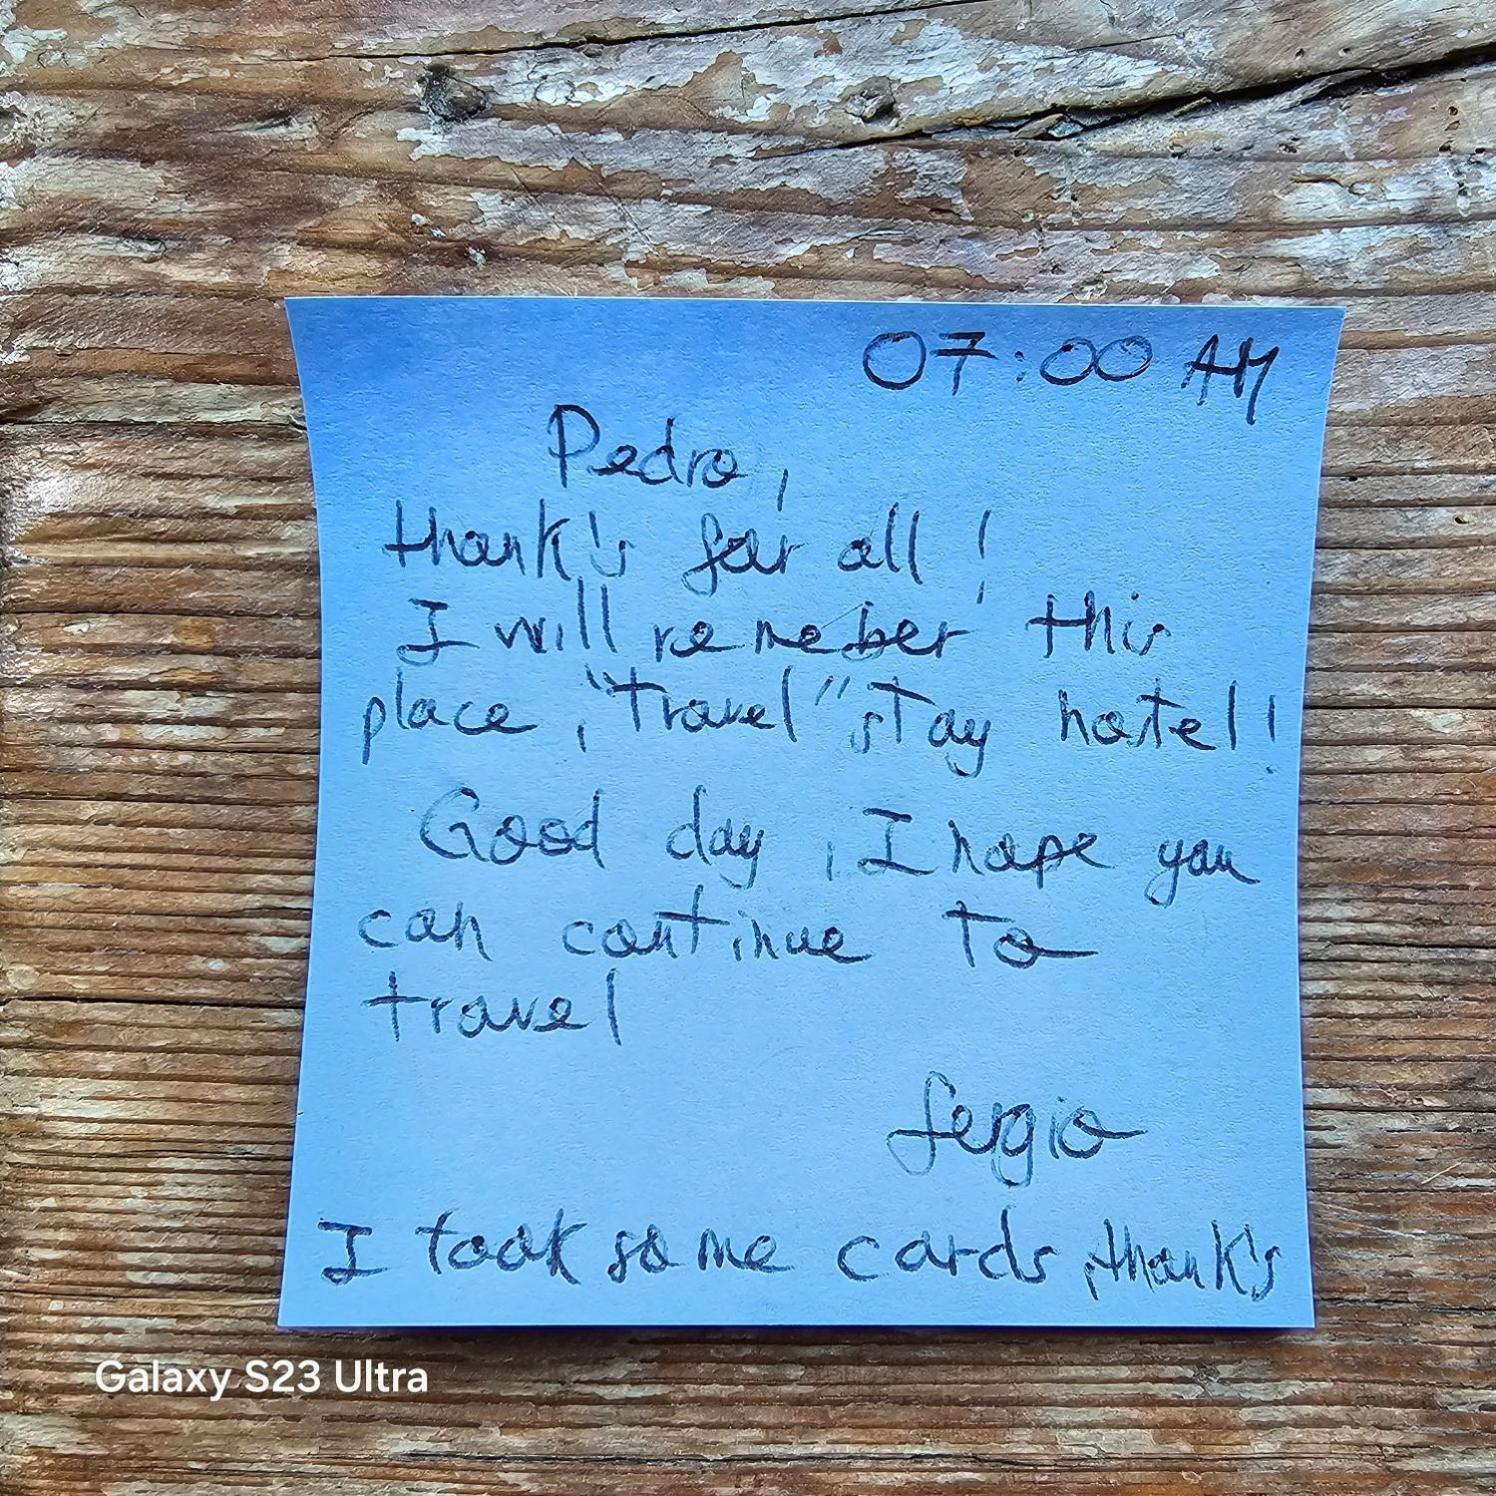 07:00 AM
Pedro,
thank's for all!
I will remeber this
place, "travel" stay hostel!
Good day, I hope you
can continue to
travel
Sergio
I took some cards, thank's
Galaxy S23 Ultra